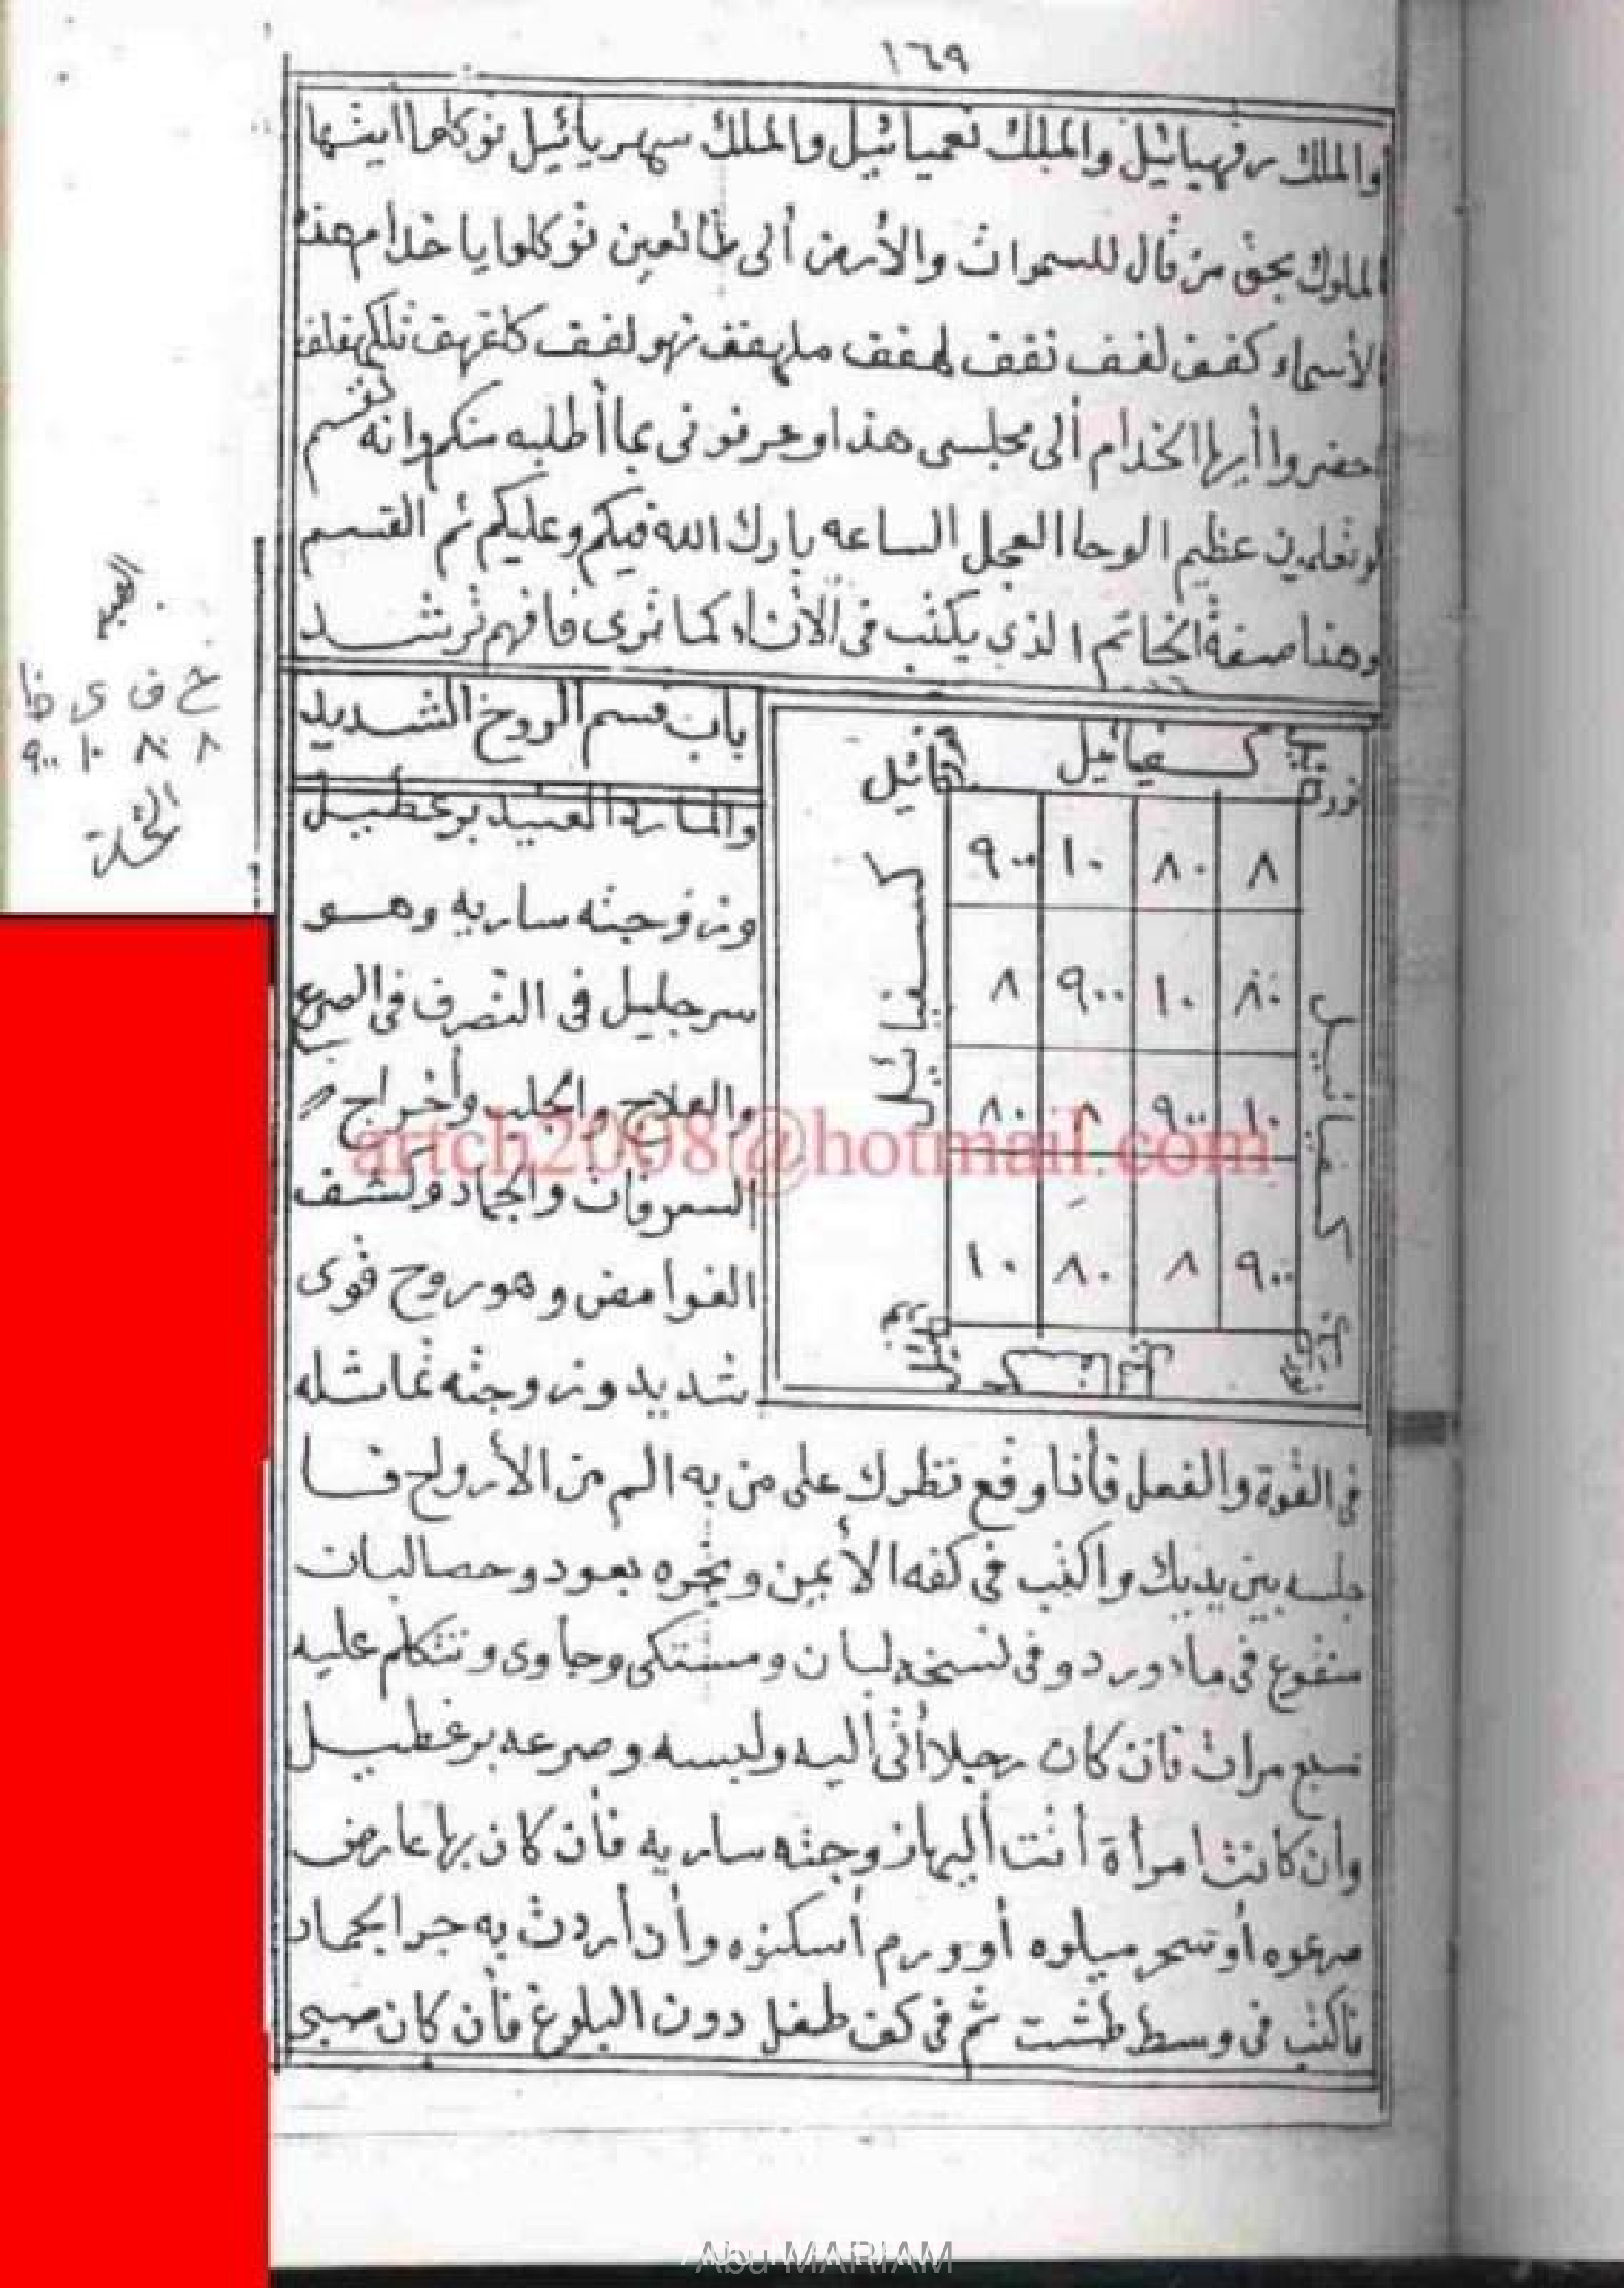 ١٦٩
والملك رفهيائيل والملك نعميائيل والملك سهريائيل توكلوا ايتها
الملوك بحق من قال للسموات والأرض ألى طائعين توكلوا يا خدام هذه
الأسماء كفف لفف نقف لهفف ملهفف نهو لفف
احضروا أيها الخدام ألى مجلسى هذا وعرفونى بما أطلبه منكم وانه لقسم
لو تعلمون عظيم الوحا العجل الساعه بارك الله فيكم وعليكم تم القسم
وهذا صفة الخاتم الذي يكتب فى الأناء كما ترى فافهم ترشد
باب قسم الروخ الشديد
والمارد العنيد برغطيل
وزوجته ساريه وهو
سر جليل فى التصرف فى الصرع
والعلاج والجلب وأخراج
السروقات والجماد وكشف
الغوامض وهو روح قوى
شديد وزوجته تماثله
كسفيائيل
٨ ٨٠ ١٠ ٩٠٠
٨٠ ١٠ ٩٠٠ ٨
١٠ ٩٠٠ ٨ ٨٠
٩٠٠ ٨ ٨٠ ١٠
كسفيائيل
فى القوة والفعل فأذا وقع نظرك على من به الم من الأرواح فا
جلسه بين يديك واكتب فى كفه الأيمن وبخره بعود وحصالبان
منقوع فى ماء ورد وفى نسخه لبان ومستكى وجاوى وتتكلم عليه
سبع مرات فأن كان رجلا أتى أليه ولبسه وصرعه برغطيل
وأن كانت امرأة أتت أليها زوجته ساريه فأن كان بها عارض
صرعوه أو سحر ميلوه أو ورم أسكنوه وأن أردت به جر الجماد
فاكتب فى وسط طشت ثم فى كف طفل دون البلوغ فأن كان صبى
ح ف ى ظ
٨ ٨٠ ١٠ ٩٠٠
artch2008@hotmail.com
Abu MARIAM